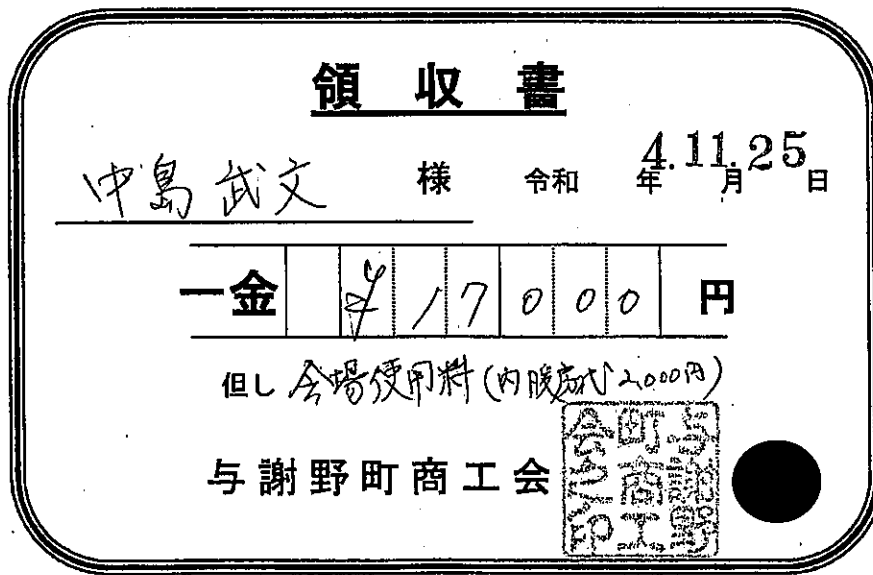 領収書
中島武文 様 令和 4年11月25日
一金 ¥17000 円
但し 会場使用料(内暖房代2,000円)
与謝野町商工会
与謝野町商工会之印